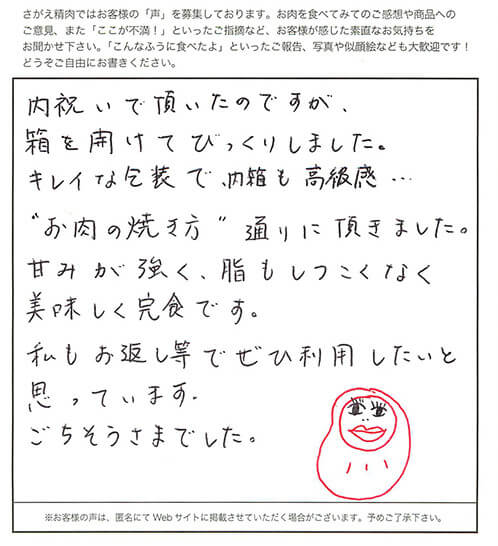 さがえ精肉ではお客様の「声」を募集しております。お肉を食べてみてのご感想や商品への
ご意見、また「ここが不満！」といったご指摘など、お客様が感じた素直なお気持ちを
お聞かせ下さい。「こんなふうに食べたよ」といったご報告、写真や似顔絵なども大歓迎です！
どうぞご自由にお書きください。
内祝いで頂いたのですが、
箱を開けてびっくりしました。
キレイな包装で、内箱も高級感…
“お肉の焼き方”通りに頂きました。
甘みが強く、脂もしつこくなく
美味しく完食です。
私もお返し等でぜひ利用したいと
思っています.
ごちそうさまでした。
※お客様の声は、匿名にてWebサイトに掲載させていただく場合がございます。予めご了承下さい。